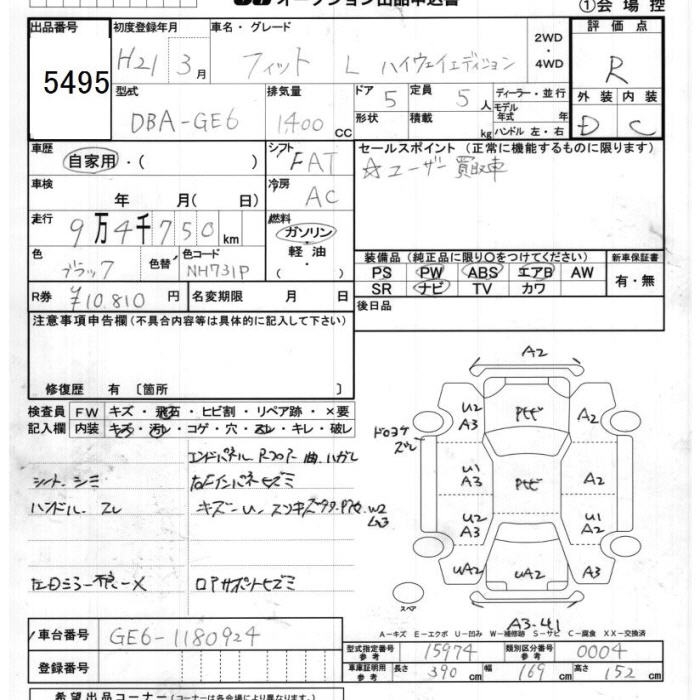 オークション出品申込書
①会場控
出品番号 初度登録年月 車名・グレード 2WD ・ 4WD 評価点
5495 H21 3月 フィット L ハイウェイエディション R
型式 排気量 ドア 定員 ディーラー・並行 外装 内装
DBA-GE6 1400 CC 5 5 人 モデル年式 年 D C
形状 積載 kg ハンドル 左・右
車歴 シフト セールスポイント (正常に機能するものに限ります)
自家用・( ) FAT ☆ユーザー買取車
車検 年 月( 日) 冷房 AC
走行 9万4千750km 燃料 ガソリン・軽油・( )
色 ブラック 色替 色コード NH731P
装備品 (純正品に限り〇をつけてください) 新車保証書
PS PW ABS エアB AW 有・無
SR ナビ TV カワ
R券 ¥10,810 円 名変期限 月 日 後日品
注意事項申告欄(不具合内容等は具体的に記入して下さい)
修復歴 有 〔箇所 〕
検査員 FW キズ・飛石・ヒビ割・リペア跡・×要
記入欄 内装 キズ・汚レ・コゲ・穴・スレ・キレ・破レ
シート、シミ
ハンドル、スレ
A2
U2 A3 A2
U1 A3 A2
U2 A3 U1 A2
UA2 UA2 A3
スペア
A3
A-キズ E-エクボ U-凹み W-補修跡 S-サビ C-腐食 XX-交換済
車台番号 GE6-1180924
型式指定番号 参考 15974 類別区分番号 参考 0004
登録番号
車庫証明用 参考 長さ 390 cm 幅 169 cm 高さ 152 cm
希望出品コーナー(コーナーは各会場により異なります)